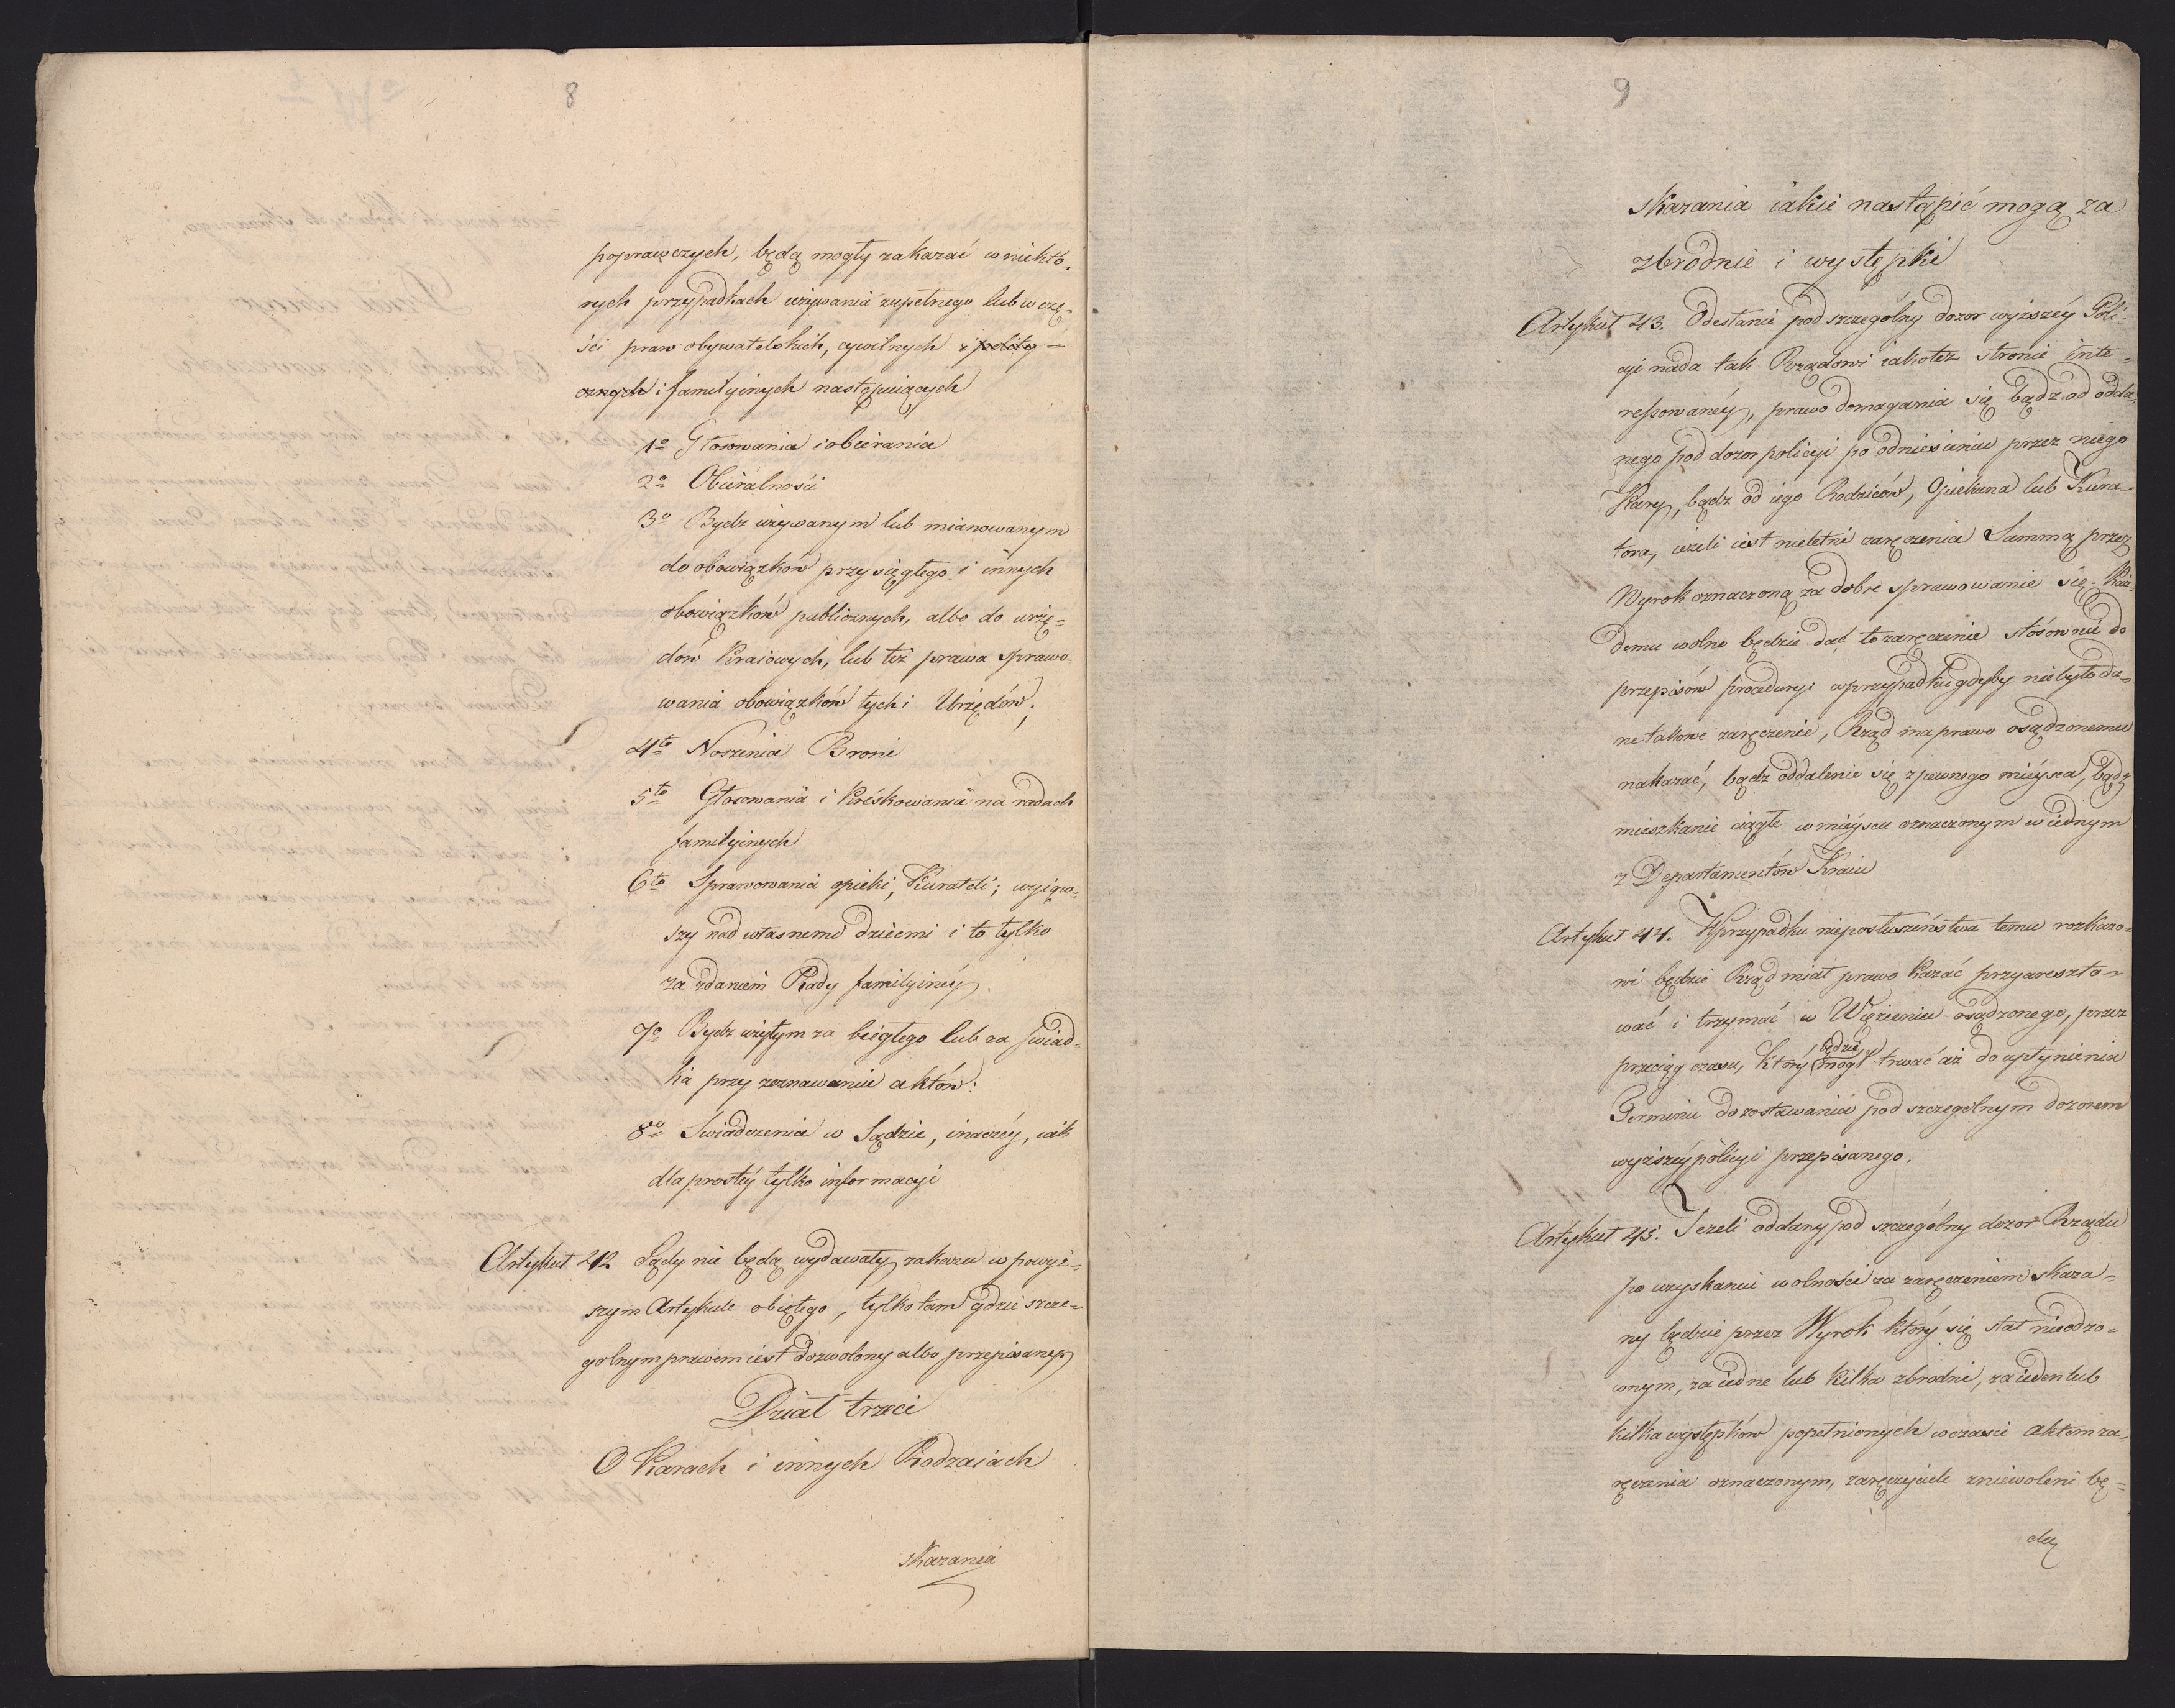 8
poprawczych, będą mogły zakazać w niektó-
rych przypadkach używania zupełnego lub w czę-
ści praw obywatelskich, cywilnych i polity-
cznych i familyinych następuiących
1o Głosowania i obierania
2o Obieralności
3o Bydz używanym lub mianowanym
do obowiązków przysięgłego i innych
obowiązków publicznych, albo do urzę-
dów Kraiowych, lub też prawa sprawo-
wania obowiązków tych i Urzędów;
4to Noszenia Broni
5to Głosowania i Kréskowania na radach
familyinych
6to Sprawowania opieki, Kurateli; wyiąw-
szy nad własnemi dziećmi i to tylko
za zdaniem Rady familyinéy.
7o Bydz wziętym za biegłego lub za świad-
ka przy zeznawaniu aktów.
8o Świadczenia w Sądzie, inaczéy, iak
dla prostéy tylko informacyi
Artykuł 42 Sądy nie będą wydawały zakazu w powyż-
szym Artykule obiętego, tylko tam gdzie szcze-
gólnym prawem iest dozwolony albo przepisany
Dział trzeci
O Karach i innych Rodzaiach
skazania
9
skazania iakie nastąpić mogą za
zbrodnie i występki
Artykuł 43. Odesłanie pod szczególny dozor wyższéy Poli-
cyi nada tak Rządowi iakoteż stronie inte-
ressowanéy, prawo domagania się bądz od odda-
nego pod dozor policyi po odniesieniu przez niego
Kary, bądz od iego Rodziców, Opiekuna lub Kura-
tora, ieżeli iest nieletni zaręczenia Summą przez
Wyrok oznaczoną za dobre sprawowanie się. Każ-
demu wolno będzie dać to zaręczenie stósownie do
przepisów procedury: w przypadku gdyby nie było da-
ne takowe zaręczenie, Rząd ma prawo osądzonemu
nakazać, bądz oddalenie się z pewnego mieysca, bądz
mieszkanie ciągłe w mieyscu oznaczonym w iednym
z Departamentów Kraiu
Artykuł 44. W przypadku nieposłuszeństwa temu rozkazo-
wi będzie Rząd miał prawo kazać przyareszto-
wać i trzymać w Więzieniu osądzonego, przez
przeciąg czasu, który będzie mógł trwać aż do upłynienia
Terminu do zostawania pod szczególnym dozorem
wyższéy policyi przepisanego.
Artykuł 45. Jeżeli oddany pod szczególny dozor Rządu
po uzyskaniu wolności za zaręczeniem skaza-
ny będzie przez Wyrok który się stał nieodzo-
wnym, za iedne lub kilka zbrodni, za ieden lub
kilka występków popełnionych w czasie aktem za-
ręczenia oznaczonym, zaręczyciele zniewoleni bę-
dą